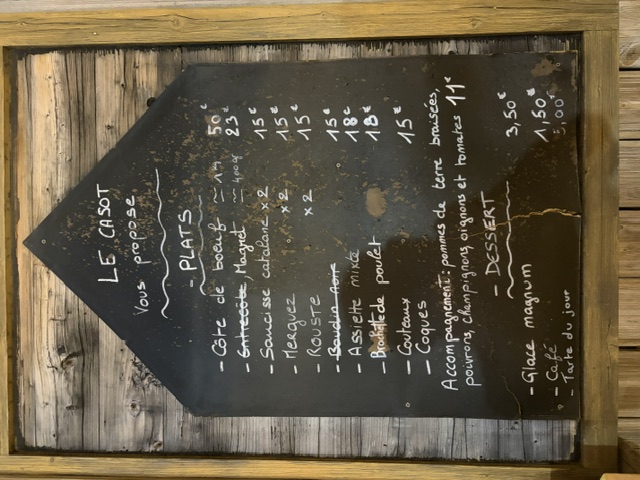 LE CASOT
Vous propose
- PLATS
- Côte de boeuf ≃ 1 50€
- Entrecôte Magret ≃ 400g 23€
- Saucisse catalane x 2 15€
- Merguez x 2 15€
- ROUSTE x 2 15€
- Boudin noir 15€
- Assiette mixte 18€
- Brochette de poulet 18€
- Couteaux 15€
- Coques
Accompagnement : pommes de terre braisées,
poivrons, champignons, oignons et tomates 11€
- DESSERT
- Glace magnum 3,50€
- Café 1,50€
- Tarte du jour 5,00€